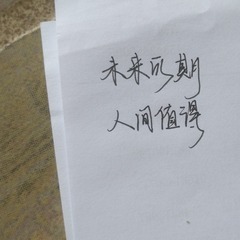 未来可期
人间值得